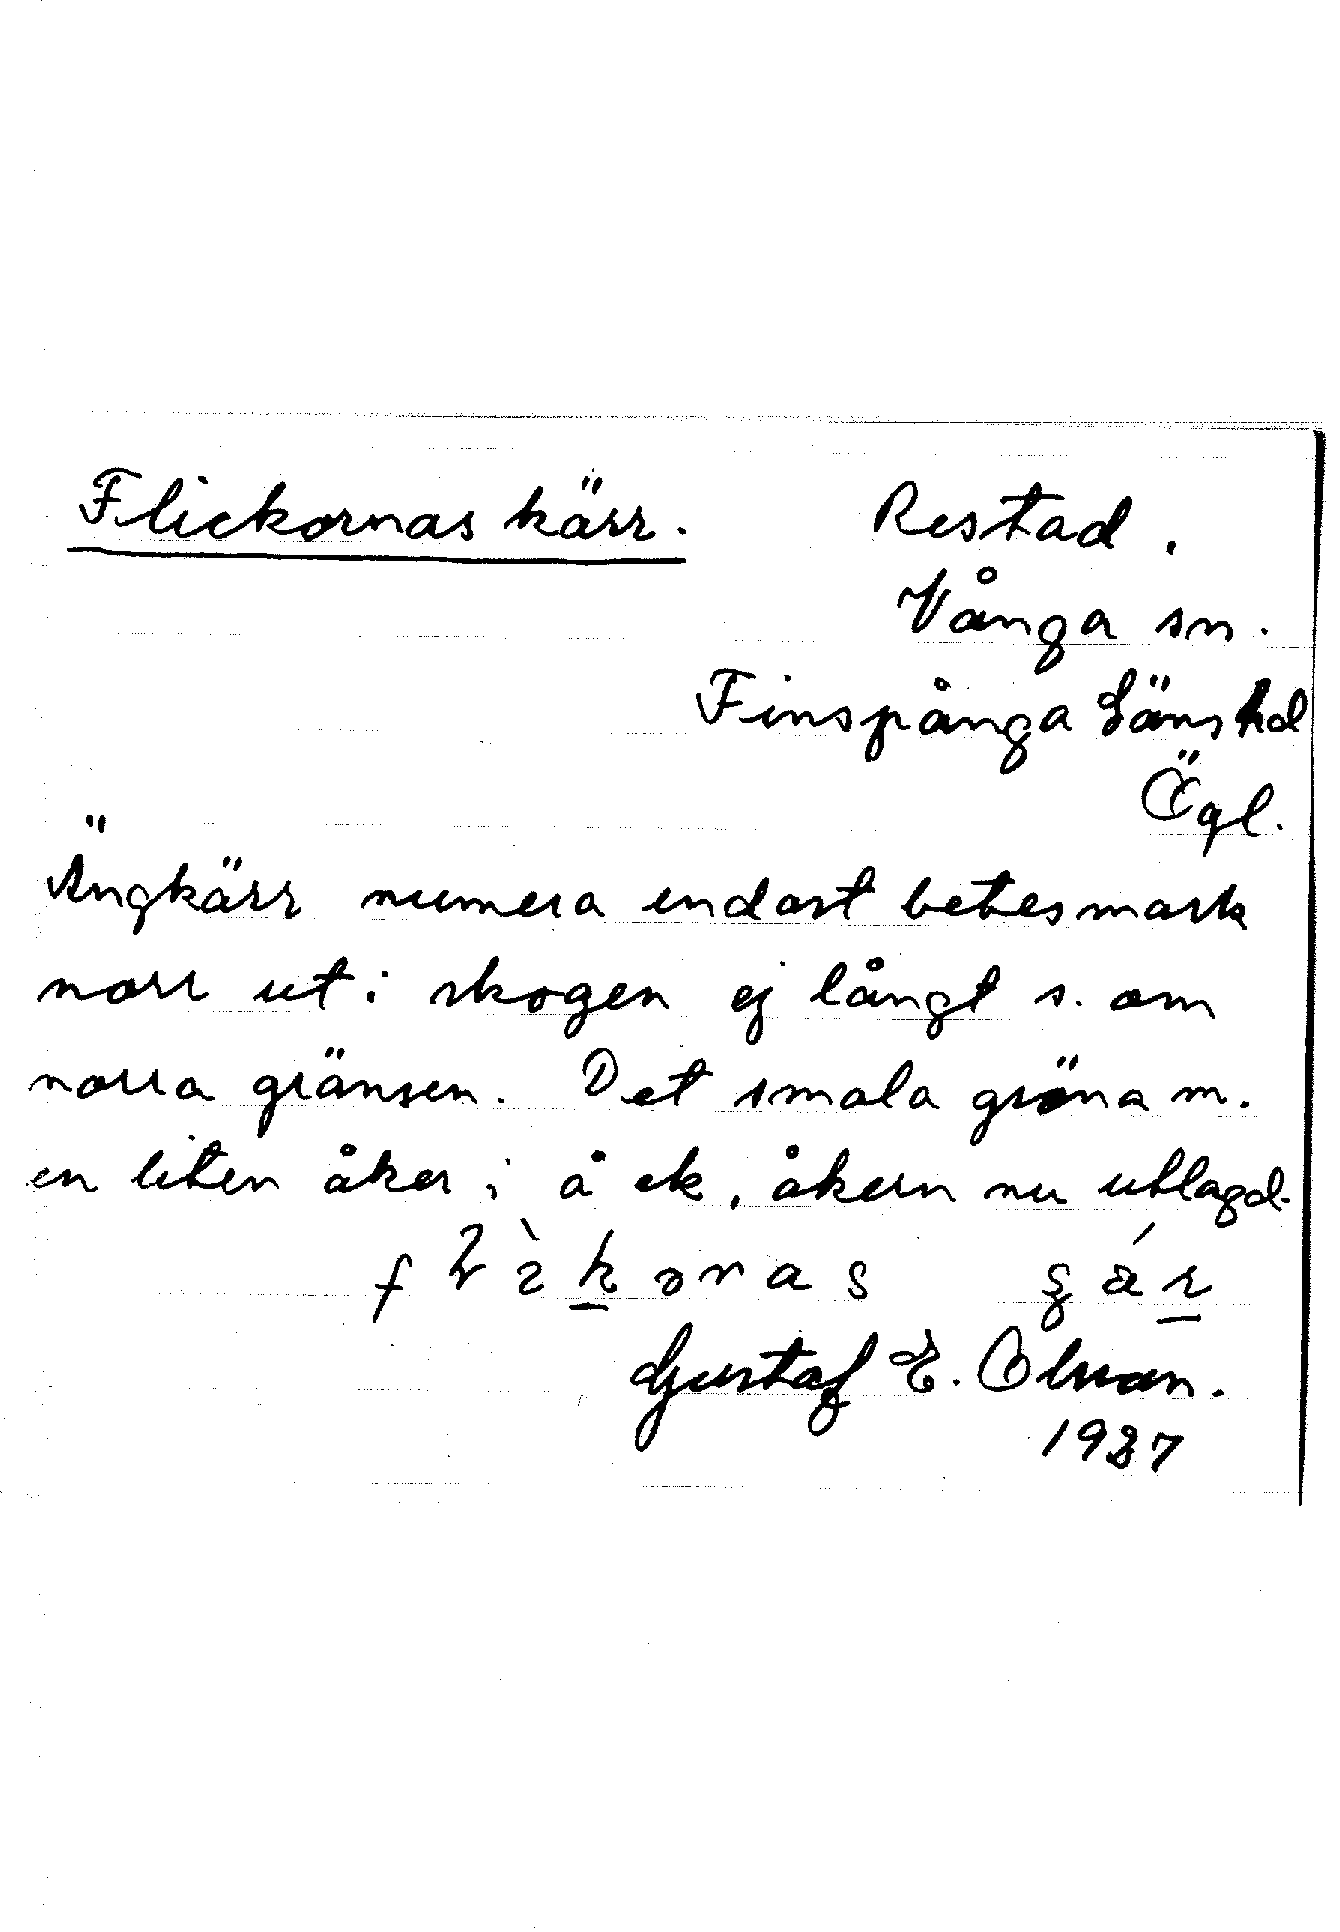 Flickornas kärr. Restad.
Vånga sn.
Finspånga läns hd
Ögl.
Ängkärr numera endast betesmark
norr ut i skogen ej långt s. om
norra gränsen. Det smala gröna m.
en liten åker i å ek, åkern nu utlagd.
Gustaf E. Olsson.
1937